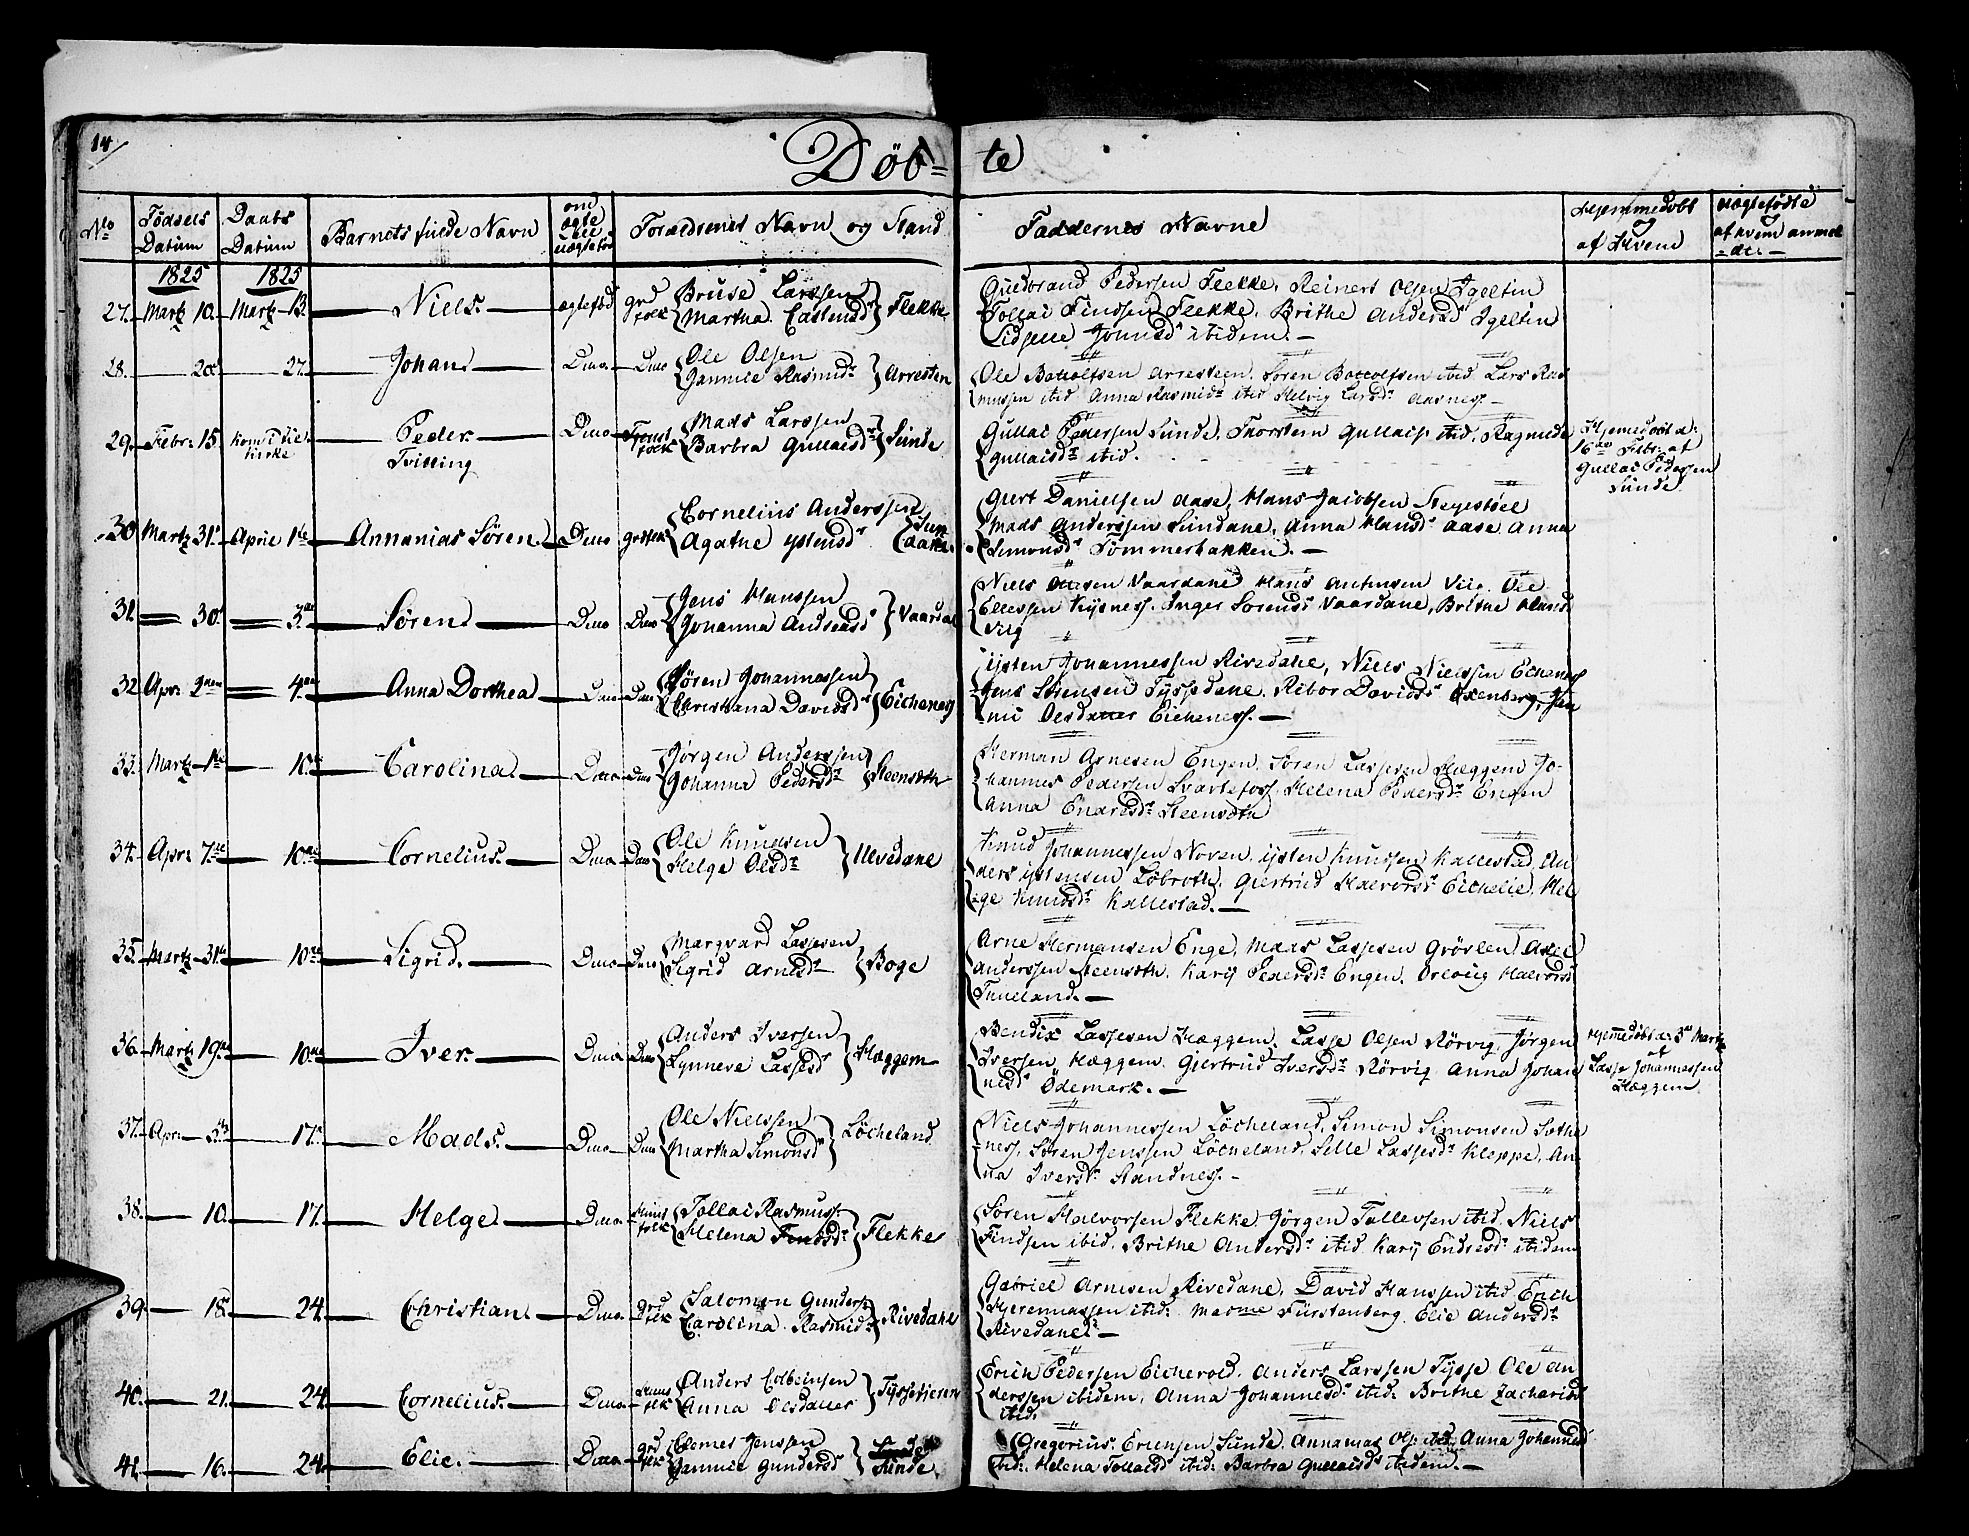 14/
Döb= te
No Fødsels Datum Daabs Datum Barnets fulde Navn om ægte eller uægtefød Forældrenes Navn og Stand Faddernes Navne Hjemmedøbt og af Hvem uægtefødte af hvem anmeldt
1825 1825
27. Martz 10. Martz 13. Niels. ægtefød grd folk Bruse Larssen Martha Flekke
Guldbrand Pedersen Flekke, Reinert Olsen Igeltin
Tollai Findssen Flekke, Brithe Andersd Igeltin
ibidem.
28. 20 27. Johan Dmo Dmo Ole Olsen Jannue Rasmusd Arresten
Ole Bottolfsen Arresteen, Sören Bottolfsen ibid. Lars Ras
mussen ibid Anna Rasmusd ibid Helvig Larsd Aasnes.
29. Febr. 15. Peder Tvilling Dmo Mads Larssen Barbra Gullaisd Sünde
Gullai Pedersen Sünde, Thorstein Gullais ibid. Ragnilde
Gullaisd ibid.
Hjemmedöbt d.
16de Febr. af
Gullai Pedersen
Sünde
30 Martz 31. April 1te Annanias Sören Dmo grdfolk Cornelius Anderssen Agathe ystensd
Giert Danielsen Aase, Hans Jacobsen
Mads Anderssen Sündane, Anna Hansd Aase Anna
Simonsd Tömmerbakken.
31. 30. 3. Sören Dmo Dmo Jens Hanssen Johanna Andreasd Vaardal
Niels Olsen Vaardane Hans
Ellessen, Inger Sörensd Vaardane, Brithe Hansd
Viig
32 Apr. 2den 4. Anna Dorthea Dmo Dmo Sören Johannessen Christiana Davidsd Eichenes
ysten Johannessen Rivedahl, Niels Nielssen Eichenes
Jens Sörensen Tyssedane, Ribor Davidsd Oxenberg, Jan
nü Olsdatter Eichenes.
33. Martz 1te 10. Carolina Dmo Dmo Jörgen Anderssen Johanna Pedersd Steensöth
Herman Arnesen Engen, Sören Lassesen Hæggem Jo-
hannes Pedersen Svartefoss, Helena Pedersd Engen
Anna Endresd Steensöth
34. Apr. 7de 10. Cornelius Dmo Dmo Ole Knudsen Helge Olsd Ulvedane
Knud Johannessen Noven, ysten Knudsen Kallestad, An
ders ystensen Löbroth, Giertrud Halvorsd Eichelie, Hel
ge Knudsd Kallestad.
35. Martz 31te 10. Sigrid Dmo Dmo Marqvard Lassesen Sigrid Arnesd Boge
Arne Hermansen Enge, Mads Lassesen Grövlen Axel
Anderssen Steensöth, Kary Pedersd Engen, Halvorsd
36. Martz 19de 10. Iver Dmo Dmo Anders Iversen Synneve Lassesd Hæggem
Bendix Lassesen Hæggem, Lasse Olsen Rörvig, Jörgen
Iversen Hæggem, Giertrud Iversd Rörvig Anna Johan
nesd Ödemark.
Hjemmedöbt d: Martz
af
Lasse Johannessen
Hæggem
37. Apr. 17. Mads Dmo Dmo Ole Nielssen Martha Simonsd Löcheland
Niels Johannessen Löcheland, Simon Simonsen Sæthe
nes, Sören Jenssen Löcheland, Sille Lassesd Kleppe, An
na Iversd Standnes.
38. 10. 17. Helge Dmo Huus folk Tollai Rasmuss. Helena Flekke
Sören Halvorsen Flekke, Jörgen Tollevsen ibid. Niels
Findsen ibid. Brithe Andersd ibid Kary Endresd ibidem
39. 18. 24. Christian Dmo grd folk Salomon Gunders. Carolina Rasmusd Rivedahl
Gabriel Arnesen Rivedane, David Hanssen ibid Erich
ibid: Fürstenberg Elie Andersd
Rivedane
40. 21. 24. Cornelius Dmo Huus folk Anders Colbeinsen Anna Olsdatter
Erich Pedersen Eichevold, Anders Larssen Tysse Ole An
derssen ibidem, Anna Johannesd ibid: Brithe Zachariasd
ibid.
41. 16. 24. Elie Dmo grd folk Clemet Jenssen Jannue Gundersd Sünde
Gregorius Sünde, Annanias Ols. ibid. Anna Johannesd
ibid: Helena Tollaisd ibid: Barbra Gullaisd ibidem.